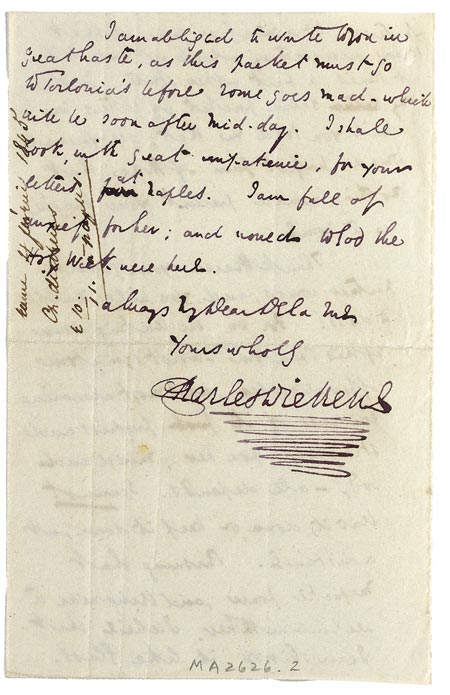 I am obliged to write to you in
great haste, as this packet must go
to Torlonia's before Rome goes mad - which
will be soon after mid-day. I shall
look, with great impatience, for your
letters at Naples. I am full of
anxiety for her; and would to God the
Week were here.
always My Dear De la Rue
Yours wholly
Charles Dickens
MA2626.2